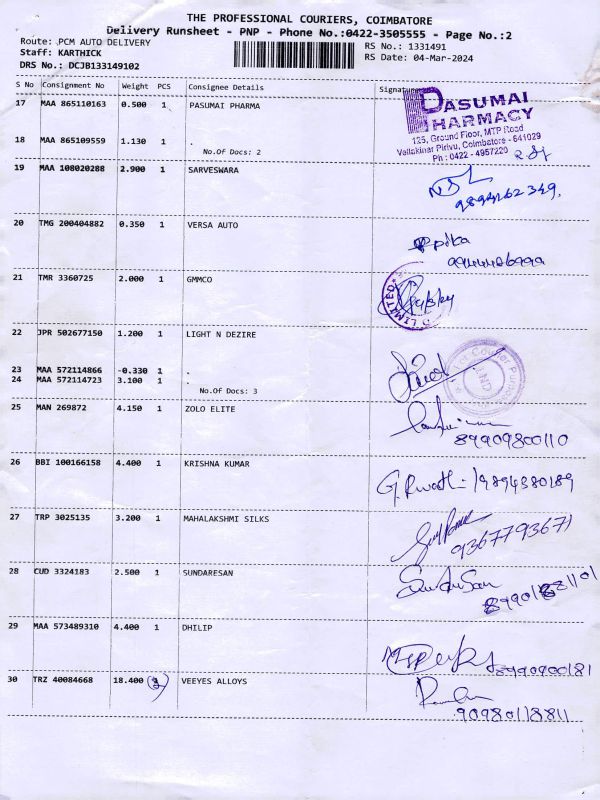 THE PROFESSIONAL COURIERS, COIMBATORE
Delivery Runsheet - PNP - Phone No.:0422-3505555 - Page No.:2
Route: PCM AUTO DELIVERY
RS No.: 1331491
Staff: KARTHICK
RS Date: 04-Mar-2024
DRS No.: DCJB133149102
S No Consignment No Weight PCS Consignee Details Signature
17 MAA 865110163 0.500 1 PASUMAI PHARMA
PASUMAI
PHARMACY
125, Ground Floor, MTP Road
Vellakinar Pirivu, Coimbatore - 641029
Ph : 0422 - 4957220
18 MAA 865109559 1.130 1 .
No.Of Docs: 2
19 MAA 108020288 2.900 1 SARVESWARA
20 TMG 200404882 0.350 1 VERSA AUTO
21 TMR 3360725 2.000 1 GMMCO
LIMITED
22 JPR 502677150 1.200 1 LIGHT N DEZIRE
23 MAA 572114866 -0.330 1 .
24 MAA 572114723 3.100 1 .
No.Of Docs: 3
25 MAN 269872 4.150 1 ZOLO ELITE
89909800110
26 BBI 100166158 4.400 1 KRISHNA KUMAR
9894380189
27 TRP 3025135 3.200 1 MAHALAKSHMI SILKS
9367793671
28 CUD 3324183 2.500 1 SUNDARESAN
29 MAA 573489310 4.400 1 DHILIP
8990900181
30 TRZ 40084668 18.400 VEEYES ALLOYS
90980118811